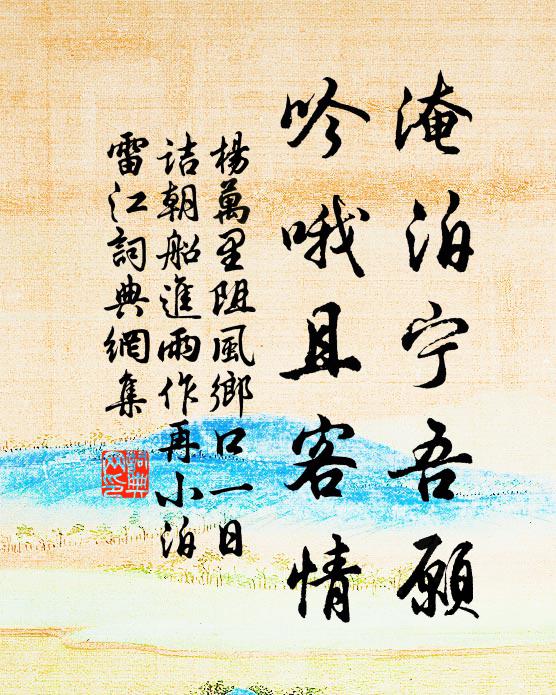 淹泊宁吾願
吟哦且客情
楊萬里阻風鄉口一日
詰朝船進雨作再小泊
雷江詞典網集